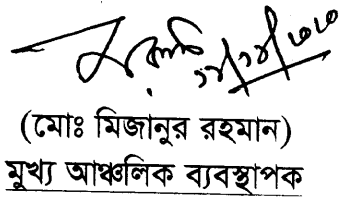 (মোঃ মিজানুর রহমান)
মুখ্য আঞ্চলিক ব্যবস্থাপক